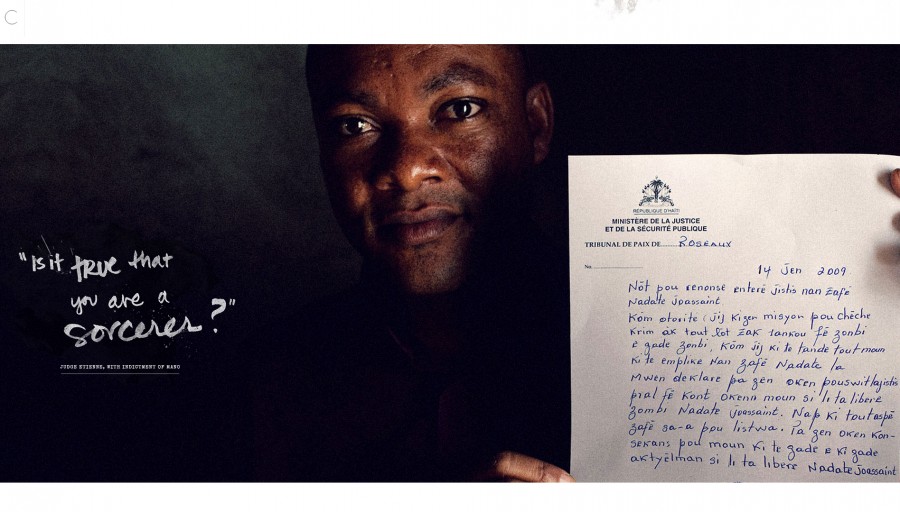 "Is it true that
you are a
sorcerer?"
JUDGE ETIENNE, WITH INDICTMENT OF NANO
RÉPUBLIQUE D'HAÏTI
MINISTÈRE DE LA JUSTICE
ET DE LA SÉCURITÉ PUBLIQUE
TRIBUNAL DE PAIX DE ROSEAUX
No.
14 Jen 2009
Nòt pou renonse enterè jistis nan zafè
Nadate Joassaint
Kòm otorite (jij kigen misyon pou chèche
krim ak tout lòt zak tankou fè zonbi
e gade zonbi, Kòm jij ki te tande tout moun
ki te emplike nan zafè Nadate la
Mwen deklare pa gen oken pouswit lajistis
pral fè kont okenn moun si li ta libere
zombi Nadate Joassaint. Nap ki tout aspè
zafè sa-a pou listwa. Pa gen oken kon-
sekans pou moun ki te gade e ki gade
aktyèlman si li ta libere Nadate Joassaint